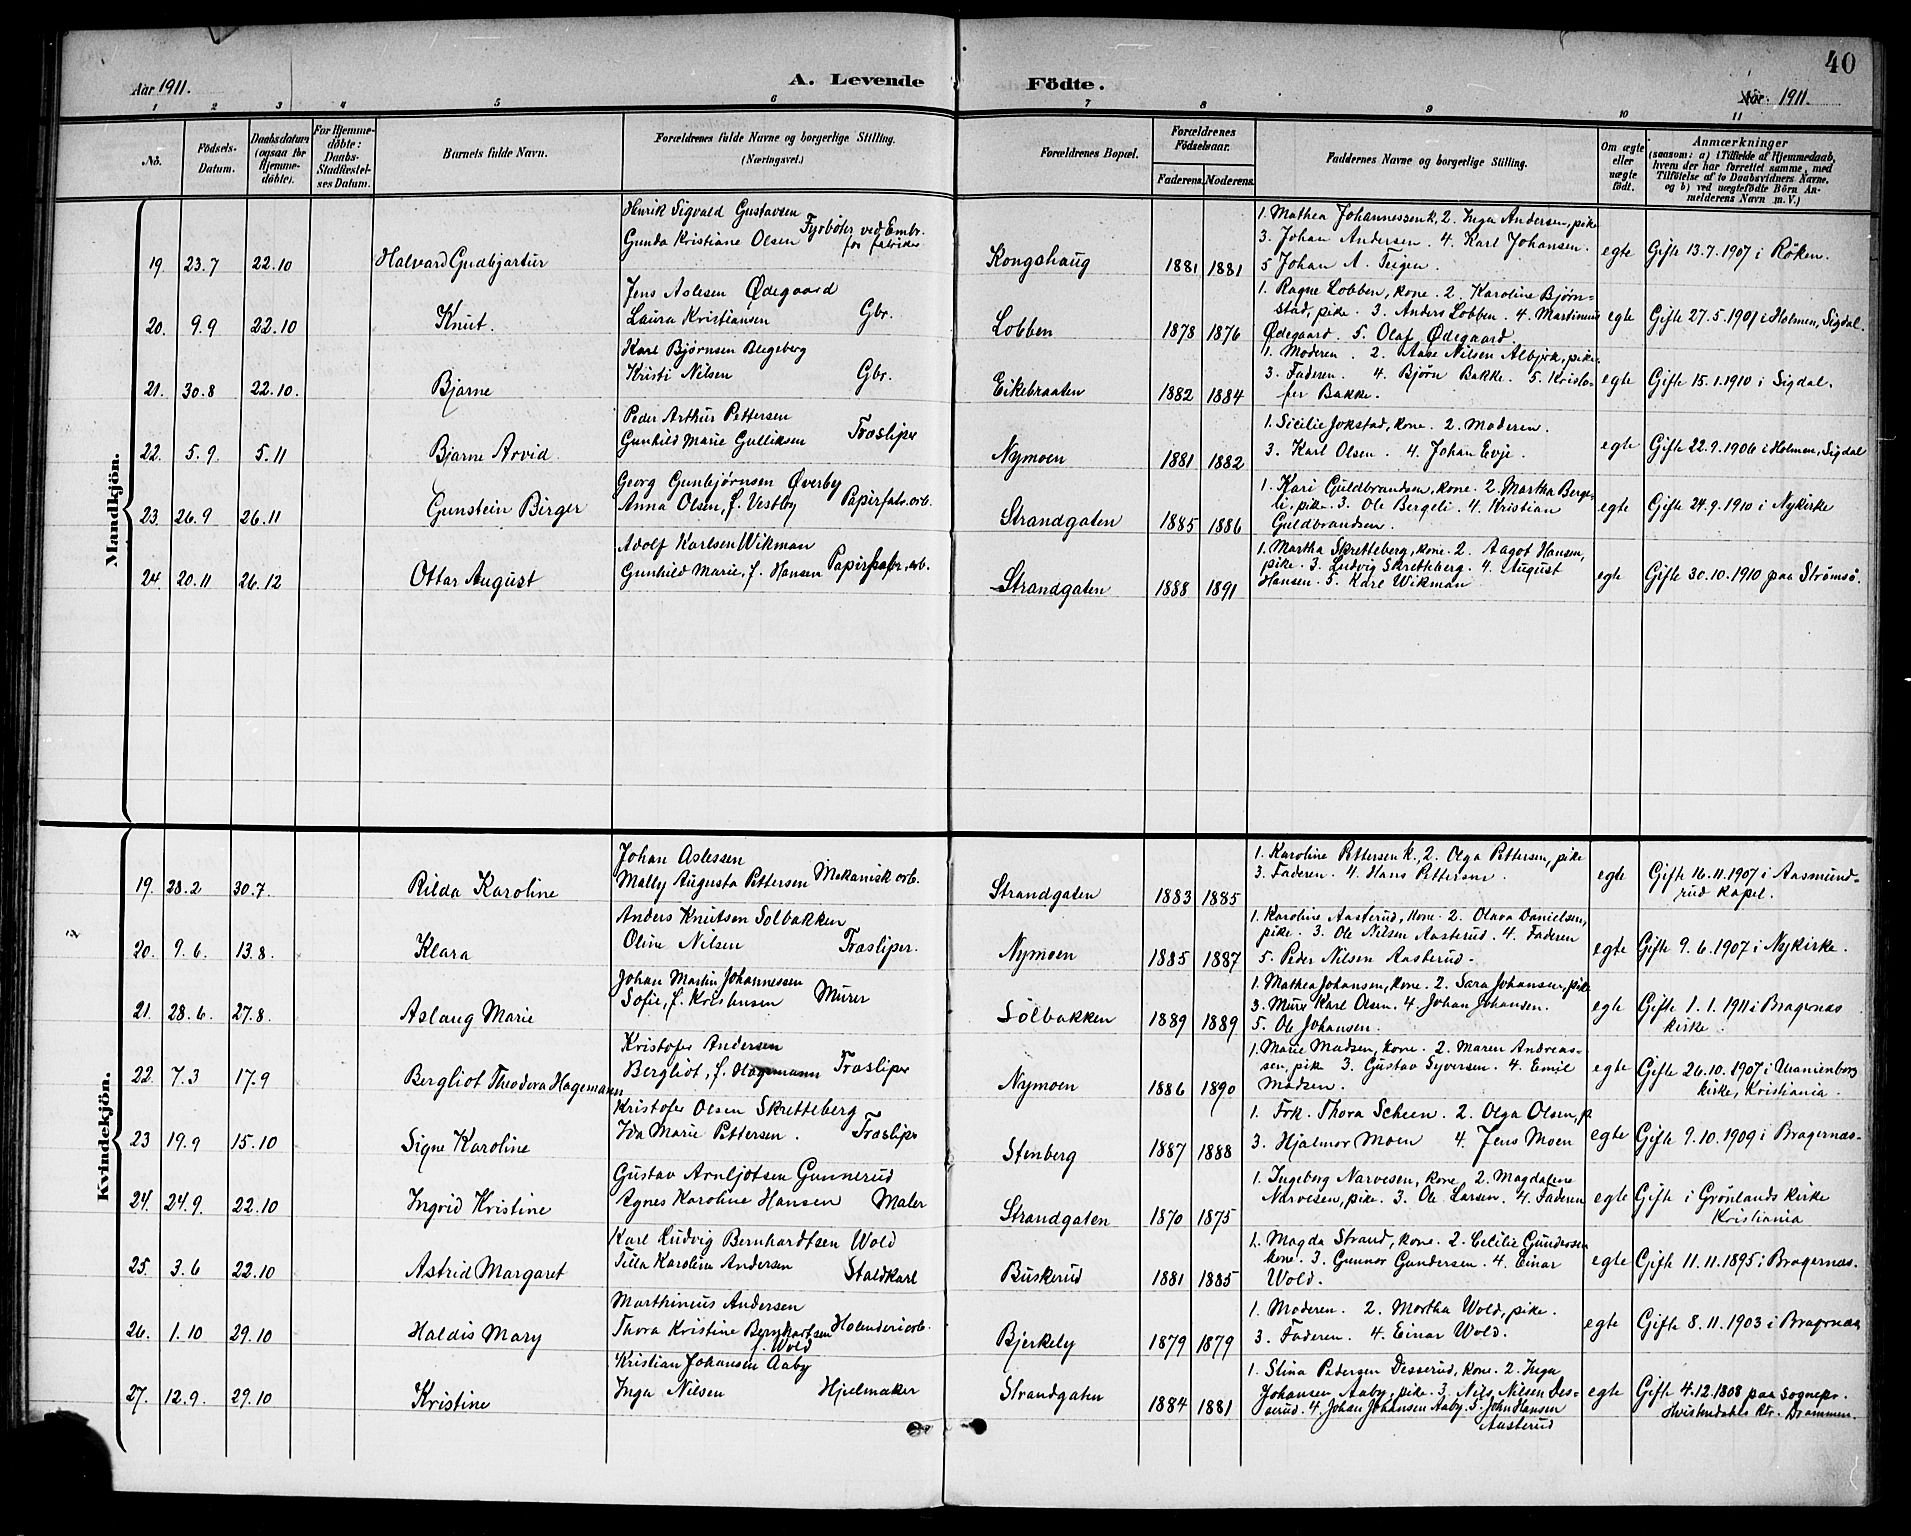 40
Aar 1911.
A. Levende Födte.
Aar 1911.
1 2 3 4 5 6 7 8 9 10 11
No.
Födsels-
Datum.
Daabsdatum
(ogsaa for
Hjemme-
döbte).
For Hjemme-
döbte:
Daabs-
Stadfæstel-
ses Datum.
Barnets fulde Navn.
Forældrenes fulde Navne og borgerlige Stilling.
(Næringsvei.)
Forældrenes Bopæl.
Forældrenes
Födselsaar.
Faderens. Moderens.
Faddernes Navne og borgerlige Stilling.
Om ægte
eller
uægte
födt.
Anmærkninger
(saasom: a) i Tilfælde af Hjemmedaab,
hvem der har forrettet samme, med
Tilföielse af to Daabsvidners Navne,
og b) ved uægtefödte Börn An-
melderens Navn m. V.)
Mandkjön.
Henrik Sigvald Gustavsen
Gunda Kristiane Olsen Fyrbøter ved Embr.
for fabriker
19. 23.7 22.10 Halvard Gudbjartur
Kongshaug 1881 1881
1. Mathea Johannessen k, 2. Inga Andersen, pike
3. Johan Andersen. 4. Karl Johansen.
5 Johan A. Teigen.
egte Gifte 13.7.1907 i Røken.
Jens Aslesen Ødegaard
Laura Kristiansen Gbr.
20. 9.9 22.10 Knut.
Lobben 1878 1876
1. Ragne Lobben, kone. 2. Karoline Bjørn-
stad, pike. 3. Anders Lobben. 4. Martinius
Ødegaard. 5. Olaf Ødegaard.
egte Gifte 27.5.1901 i Holmen, Sigdal.
Karl Bjørnsen Blegeberg
Kristi Nilsen Gbr.
21. 30.8 22.10. Bjarne
Eikebraaten 1882 1884
1. Moderen. 2. Aase Nilsen Albjrk, pike.
3. Faderen. 4. Bjørn Bakke. 5. Kristo-
fer Bakke.
egte Gifte 15.1.1910 i Sigdal.
Peder Arthur Pettersen
Gunhild Marie Gulliksen Træsliper
22. 5.9. 5.11 Bjarne Arvid
Nymoen 1881 1882
1. Sicilie Jokstad, kone. 2. Moderen.
3. Karl Olsen. 4. Johan Evje.
egte Gifte 22.9.1906 i Holmen, Sigdal
Georg Gunbjørnsen Øverby
Anna Olsen, f. Vestby Papirfabr. arb.
23. 26.9 26.11 Gunstein Birger
Strandgaten 1885 1886
1. Kari Guldbrandsen, kone. 2. Martha Berge-
li, pike. 3. Ole Bergeli. 4. Kristian
Guldbrandsen.
egte Gifte 24.9.1910 i Nykirke
Adolf Karlsen Wikman
Gunhild Marie, f. Hansen Papirfabr. arb.
24. 20.11 26.12 Ottar August
Strandgaten 1888 1891
1. Martha Skretteberg, kone. 2. Aagot Hansen,
pike. 3. Ludvig Skretteberg. 4. August
Hansen. 5. Karl Wikman
egte Gifte 30.10.1910 paa Strømsö.
Kvindekjön.
Johan Aslessen
Mally Augusta Pettersen Mekanisk arb.
19. 28.2 30.7. Rilda Karoline
Strandgaten 1883 1885
1. Karoline Pettersen k., 2. Olga Pettersen, pike
3. Faderen. 4. Hans Pettersen.
egte Gifte 16.11.1907 i Aasmund-
rud Kapel.
Anders Knutsen Solbakken
Oline Nilsen Træsliper.
20. 9.6. 13.8. Klara
Nymoen 1885 1887
1. Karoline Aasterud, kone. 2. Olava Danielsen,
pike. 3. Ole Nilsen Aasterud. 4. Faderen
5. Peder Nilsen Aasterud.
egte Gifte 9.6.1907 i Nykirke.
Johan Martin Johannessen
Sofie, f. Kristensen Murer
21. 28.6. 27.8. Aslaug Marie
Solbakken 1889 1889
1. Mathea Johansen, kone. 2. Sara Johansen, pike
3. Murer Karl Olsen. 4. Johan Johansen.
5. Ole Johansen.
egte Gifte 1.1.1911 i Bragernæs
kirke.
Kristofer Andersen
Bergliot, f. Hagemann Træsliper
22. 7.3 17.9 Bergliot Theodora Hagemann
Nymoen 1886 1890
1. Marie Madsen, kone. 2. Maren Andreas-
sen, pike 3. Gustav Syversen. 4. Emil
Madsen.
egte Gifte 26.10.1907 i Uranienborg
kirke, Kristiania.
Kristofer Olsen Skretteberg
Ida Marie Pettersen. Træsliper
23 19.9 15.10 Signe Karoline
Stenberg 1887 1888
1. Frk. Thora Scheen. 2. Olga Olsen, p.
3. Hjalmar Moen 4. Jens Moen
egte Gifte 9.10.1909 i Bragernæs.
Gustav Arnljotsen Gunnerud
Agnes Karoline Hansen Maler
24. 24.9. 22.10 Ingrid Kristine
Strandgaten 1870 1875
1. Ingeborg Narvesen, kone. 2. Magdalene
Narvesen, pike. 3. Ole Larsen. 4. Faderen
egte Gifte i Grönlands kirke
Kristiania
Karl Ludvig Bernhardtsen Wold
Tilla Karoline Andersen Staldkarl
25. 3.6 22.10 Astrid Margaret
Buskerud 1881 1885
1. Magda Strand, kone. 2. Cecilie Gundersen
kone. 3. Gunnar Gundersen. 4. Einar
Wold.
egte Gifte 11.11.1895 i Bragernæs.
Marthinius Andersen
Thora Kristine Bernhartsen Holenderiarb.
f. Wold
26. 1.10 29.10 Haldis Mary
Bjerkely 1879 1879
1. Moderen. 2. Martha Wold, pike.
3. Faderen. 4. Einar Wold.
egte Gifte 8.11.1903 i Bragernæs
Kristian Johansen Aaby
Inga Nilsen Hjulmaker
27. 12.9. 29.10 Kristine
Strandgaten 1884 1881
1. Stina Pedersen Desserud, kone. 2. Inga
Johansen Aaby, pike. 3. Nils Nilsen Des-
serud. 4. Johan Johansen Aaby. 5. John Hansen
Aasterud
egte Gifte 4.12.1808 paa Sognepr.
Hvistendahls Ktr. Drammen.